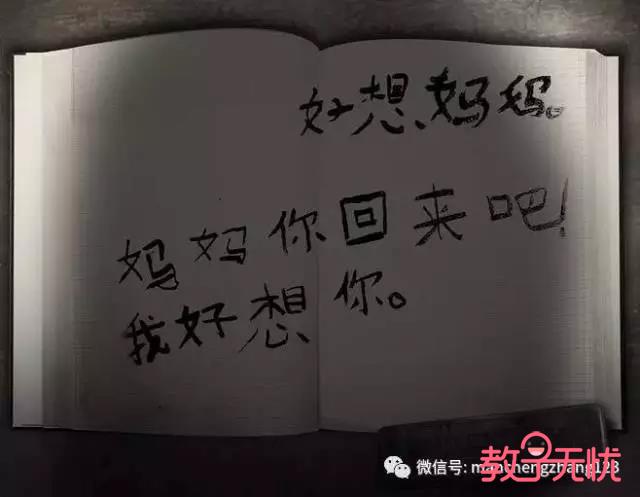 好想妈妈。
妈妈你回来吧！
我好想你。
教子无忧
微信号: manchengzhang123